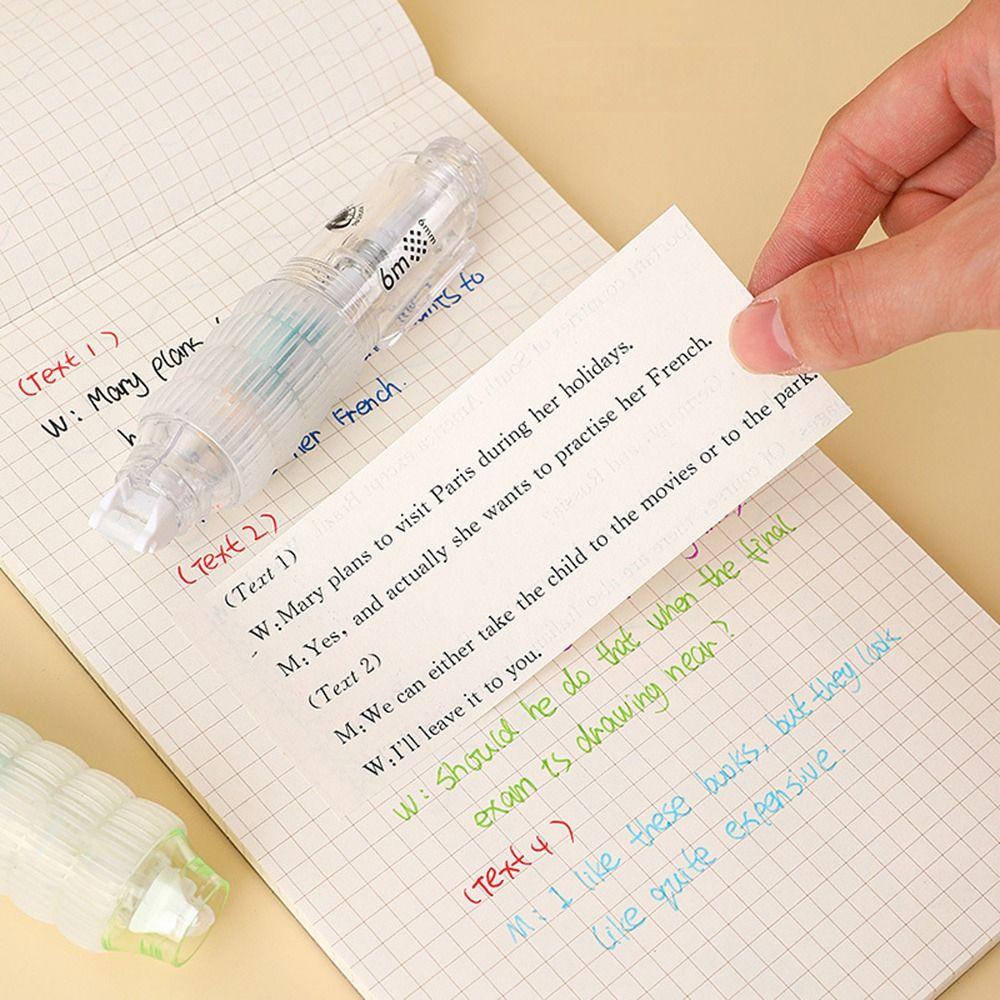 (Text 1)
W: Mary plans
to
her French.
6m
6mm
(Text 2)
(Text 1)
W:Mary plans to visit Paris during her holidays.
M:Yes, and actually she wants to practise her French.
(Text 2)
M:We can either take the child to the movies or to the park.
W:I'll leave it to you.
W: Should he do that when the final
exam is drawing near?
(Text 4)
M: I like these books, but they look
like quite expensive.